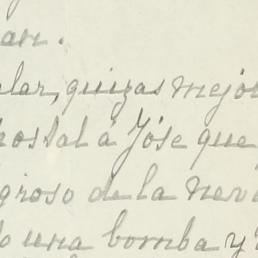 an.
lar, quizas mejo
ostal á Jóse que
groso de la nev
una bomba y